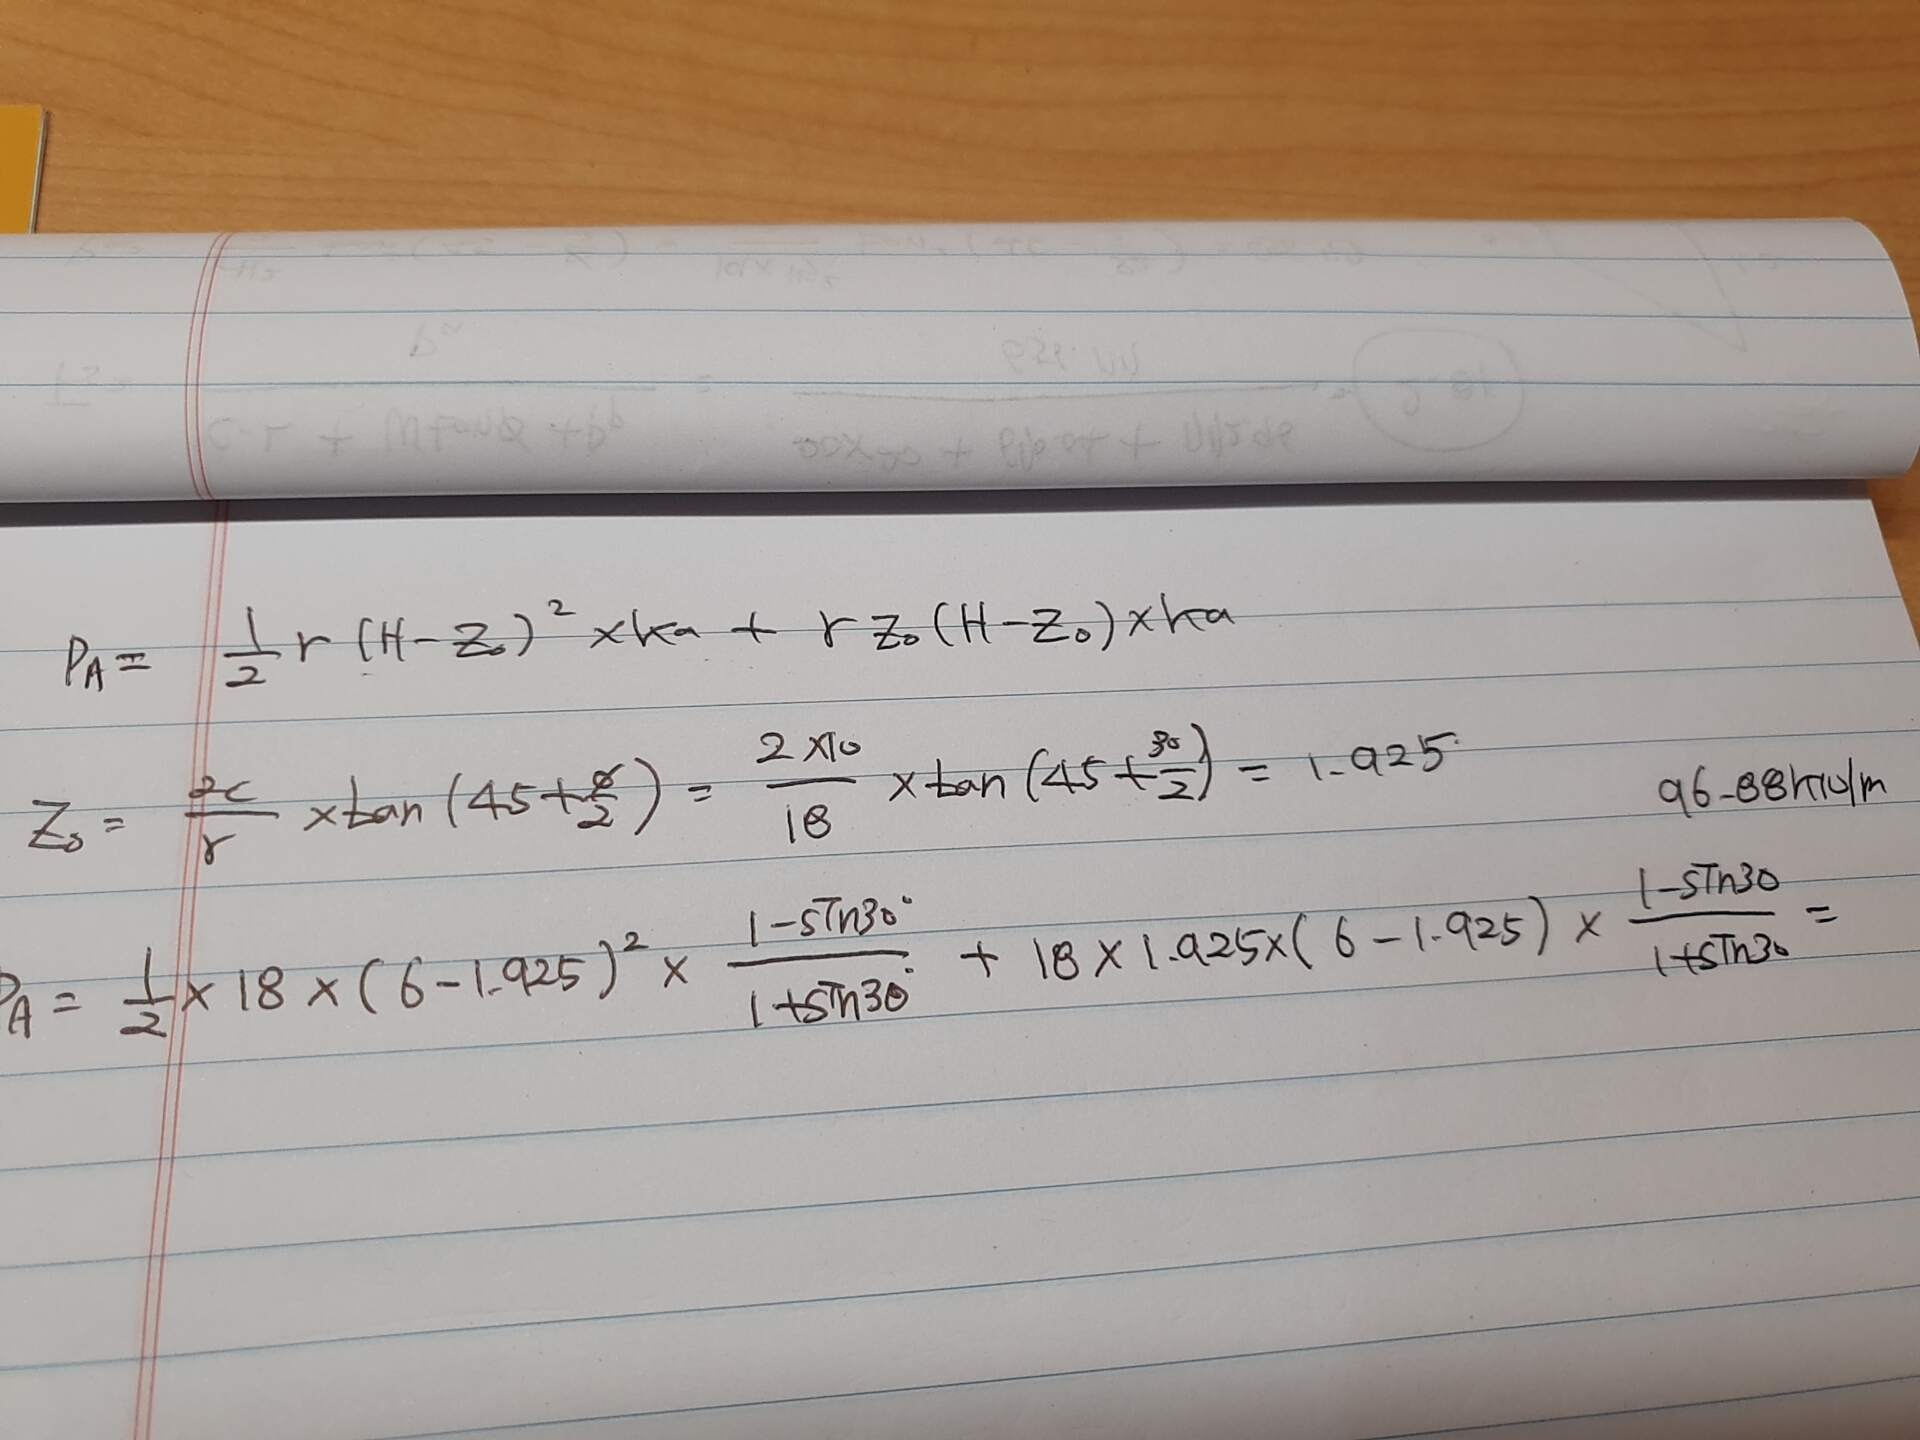 P_A = 1/2 r (H-Z₀)² × ka + r Z₀ (H-Z₀) × ka
Z₀ = 2c/r × tan (45 + ø/2) = 2×10/18 × tan (45 + 30/2) = 1.925
96.88kN/m
P_A = 1/2 × 18 × (6-1.925)² × 1-sin30°/1+sin30° + 18 × 1.925 × (6-1.925) × 1-sin30/1+sin30 =